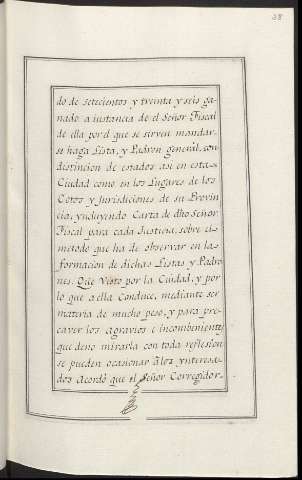 38
do de setecientos y treinta y seis ga-
nado a instancia de el Señor Fiscal
de ella por el que se sirven mandar-
se haga Lista, y Padron general, con
distincion de estados asi en esta-
Ciudad como en los Lugares de los
Cotos y Jurisdiciones de su Provin
cia, yncluyendo Carta de dho Señor
Fiscal para cada Justicia, sobre el-
metodo que ha de observar en las
formacion de dichas Listas y Padro
nes. Que Visto por la Ciudad, y por
lo que a ella Conduce, mediante ser
materia de mucho peso, y para pre-
caver los agravios e incombenientes
que deno mirarla con toda reflesion
se pueden ocasionar â los ynteresa-
dos Acordó que el Señor Corregidor-